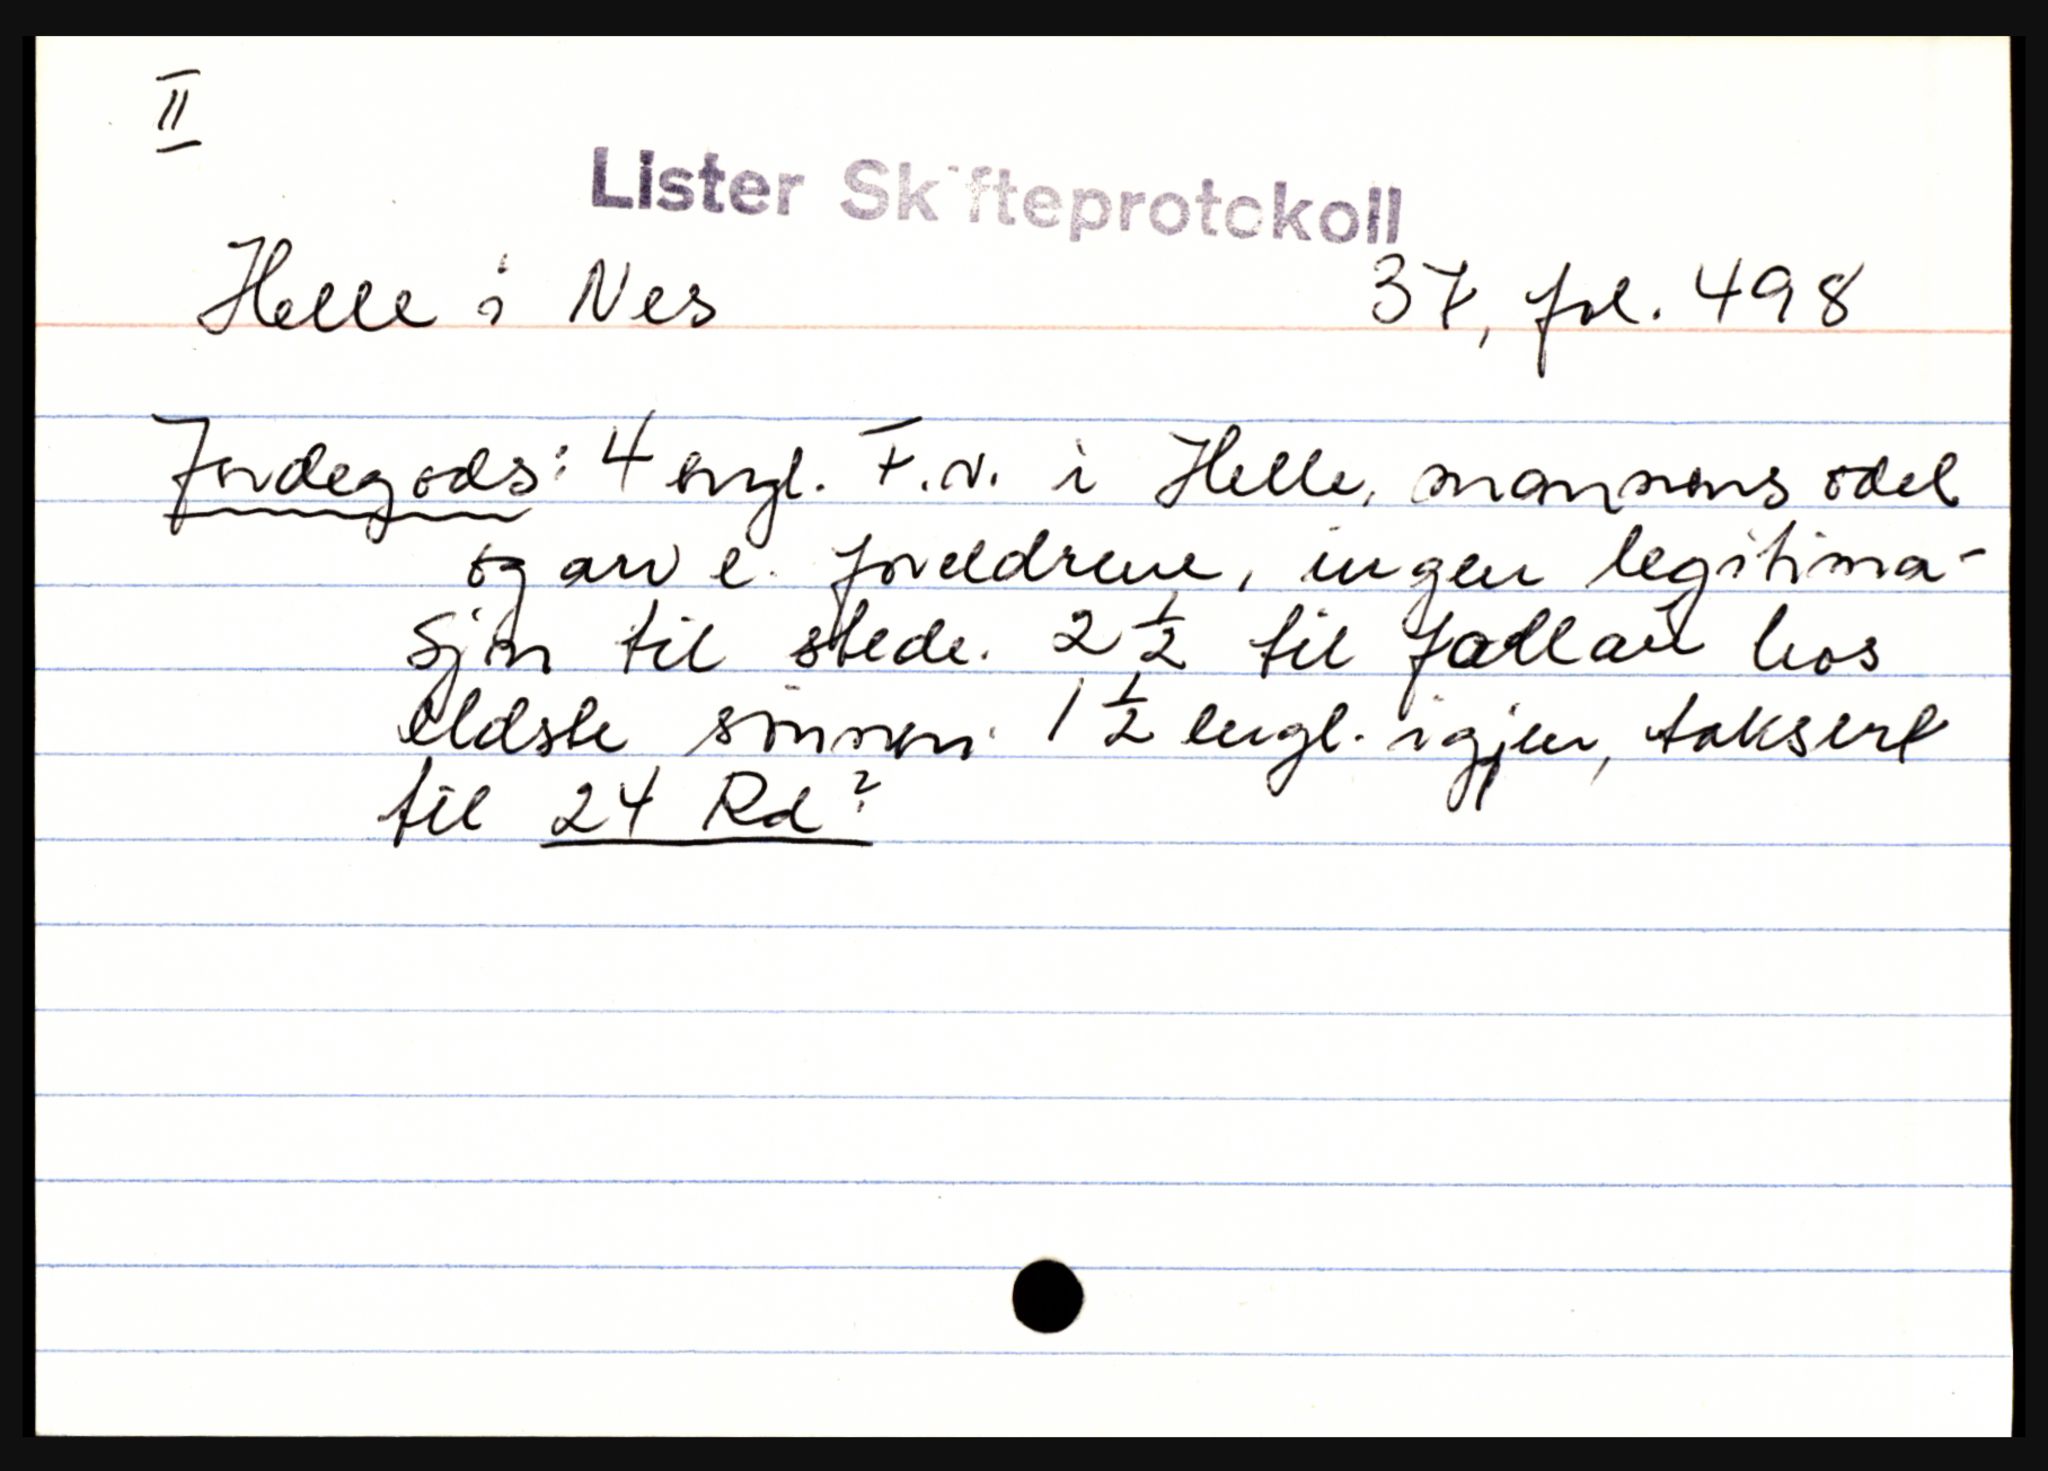 II
Lister Skifteprotokoll
Helle i Nes 37, fol. 498
Jordegods: 4 engl. F.v. i Helle, mannens odel
og arv e. foreldrene, ingen legitima-
sjon til stede. 2 1/2 til
eldste sønnen. 1 1/2 engl. igjen, taksert
til 24 Rd?